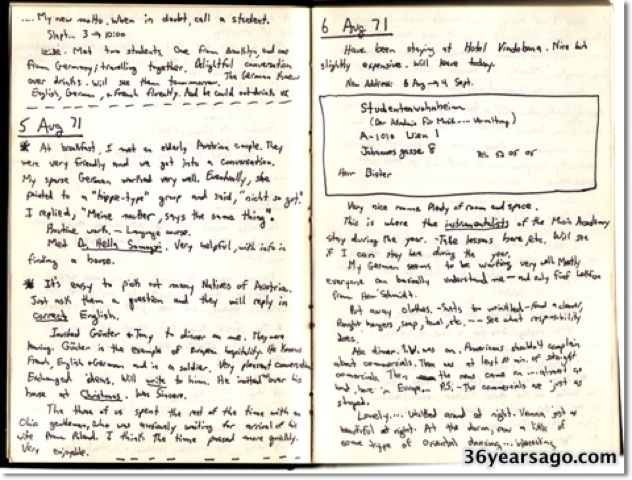 .... My new motto. When in doubt, call a student.
Slept 3 → 10:00
Met two students. One from America, and one
from Germany; travelling together. Delightful conversation
over drinks. Will see them tomorrow. The German knew
English, German, & French fluently. And he could out drink us
5 Aug 71
* At breakfast, I met an elderly Austrian couple. They
were very friendly and we got into a conversation.
My sparse German worked very well. Eventually, she
pointed to a "hippie-type" group and said, "nicht so gut."
I replied, "Meine mutter, says the same thing".
Routine work. - Language course.
Met Dr. Hella. Very helpful, with info in
finding a house.
* It's easy to pick out many Natives of Austria.
Just ask them a question and they will reply in
correct English.
Invited Günter & Tony to dinner on me. They were
leaving. Günter is the example of European hospitality. He knows
French, English & German and is a soldier. Very pleasant conversation
Exchanged ideas. Will write to him. He invited over his
house at Christmas. Was Sincere.
The three of us spent the rest of the time with an
Ohio gentleman, who was anxiously waiting for arrival of his
wife from Poland. I think the time passed more quickly.
Very enjoyable.
6 Aug 71
Have been staying at Hotel Vindobona. Nice but
slightly expensive. Will leave today.
New Address: 6 Aug → 4 Sept.
Studentenwohnheim
(Der Akademie Für Musik
A-1010 Wien 1
Johannesgasse 8 Tel. 52 05 05
Herr Bieler
Very nice rooms. Plenty of room and space.
This is where the instrumentalists of the Music Academy
stay during the year. - Take lessons here, etc. Will see
if I can stay here during the year.
My German seems to be working very well. Mostly
everyone can basically understand me — and only first Lektion
from Herr Schmidt.
Put away clothes. - Suits to wrinkled - find a cleaner,
Bought hangers, soap, towel, etc. -- See what responsibility
does.
Ate dinner. T.V. was on. Americans shouldn't complain
about commercials. There was at least 10 min. of straight
commercials. Then the news came on ... almost as
bad, here in Europe. P.S. - The commercials are just as
stupid.
Lovely.... Walked around at night. Vienna just as
beautiful at night. At the dorm, saw a little of
some type of Oriental dancing... interesting.
36yearsago.com